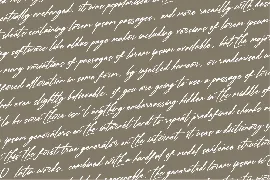 essentially unchanged, it was popularised in
sheets containing lorem ipsum passages, and more recently with desk
software like aldus page maker including versions of lorem ipsum
many variations of passages of lorem ipsum available, but the majo
suffered alteration in some form, by injected humour, or randomised w
look even slightly believable. if you are going to use a passage of lor
to be sure there isn't anything embarrassing hidden in the middle
ipsum generators on the internet tend to repeat predefined chunks
this the first true generator on the internet. it uses a dictionary
latin words, combined with a handful of model sentence structures
the generated lorem ipsum is